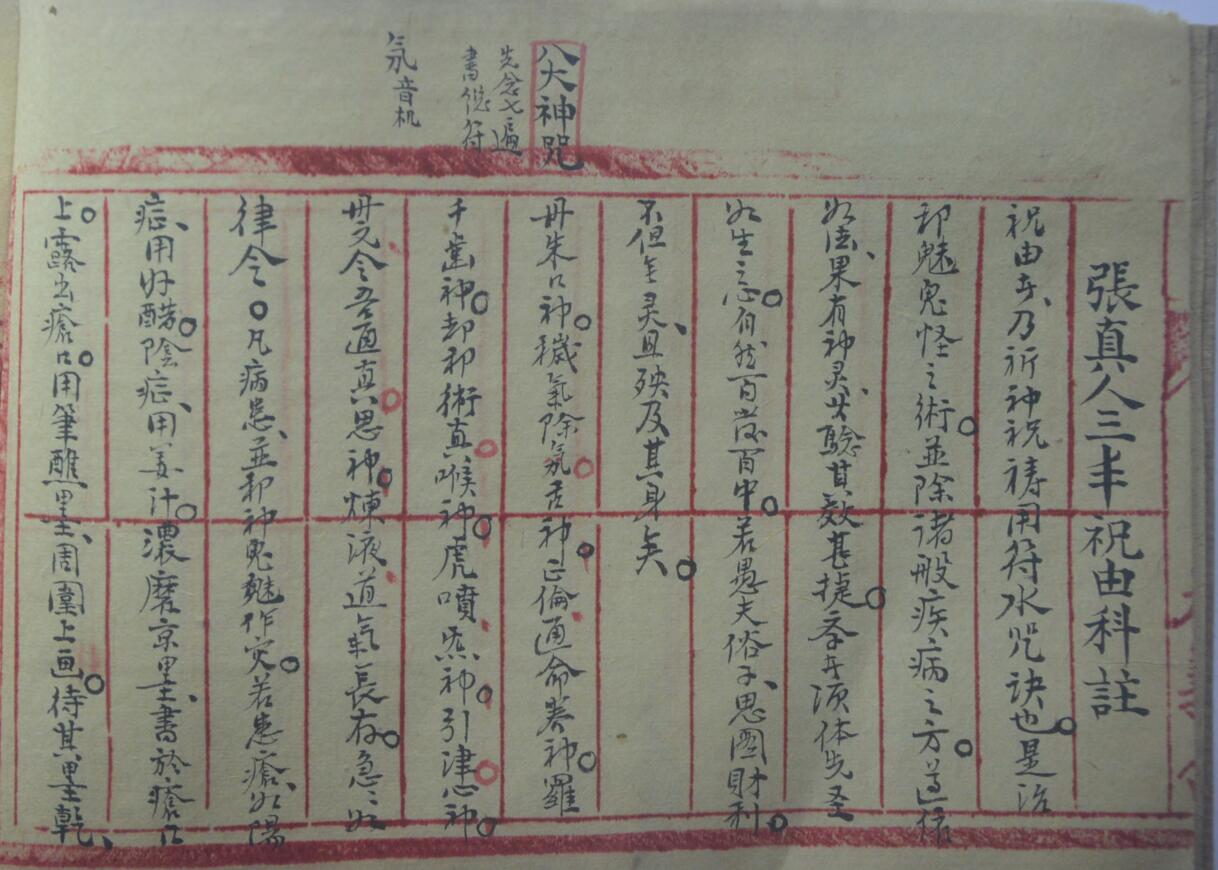 張真人三丰祝由科註
祝由者、乃祈神祝禱用符水咒诀也。是治
邪魅鬼怪之術。並除诸般疾病之方。
如法、果有神灵、其驗其效甚捷。奉者须体先圣
好生之心。自然百發百中。若愚夫俗子、思圖財利。
不但無灵、且殃及其身矣。
八大神咒
先念七遍
書後符
氛音机
丹朱口神。穢氣除氛舌神。正倫通命養神。羅
千齒神。却邪術真喉神。虎噴炁神。引津心神。
丹元令吾通真思神。煉液道氣長存。急、如
律令。凡病患、並邪神鬼魅作灾。若患瘡、如陽
症、用好醋。陰症、用姜汁。濃磨京墨、書於瘡口
上。露出瘡口。用筆蘸墨、周圍上画。待其墨乾、